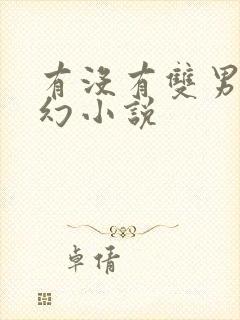 有没有雙男
幻小説
卓倩